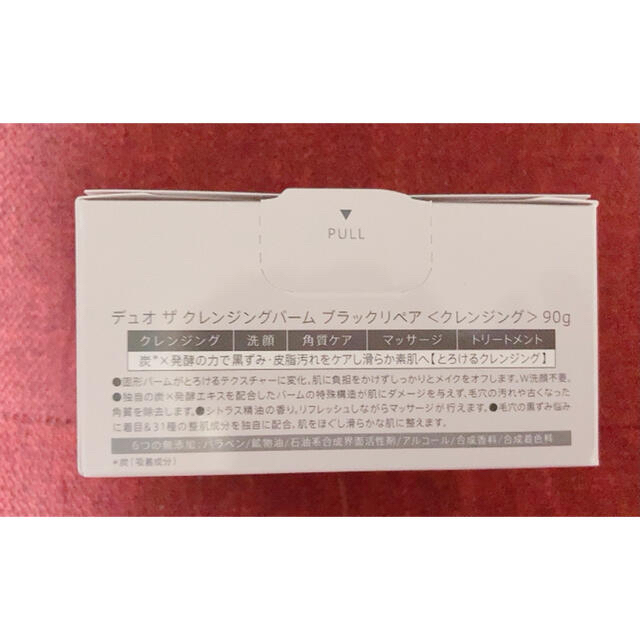 ▼
PULL
デュオ ザ クレンジングバーム ブラックリペア <クレンジング> 90g
クレンジング 洗顔 角質ケア マッサージ トリートメント
炭*×発酵の力で黒ずみ・皮脂汚れをケアし滑らか素肌へ【とろけるクレンジング】
●固形バームがとろけるテクスチャーに変化。肌に負担をかけずしっかりとメイクをオフします。W洗顔不要。
●独自の炭×発酵エキスを配合したバームの特殊構造が肌にダメージを与えず、毛穴の汚れや古くなった
角質を除去します。●シトラス精油の香り。リフレッシュしながらマッサージが行えます。●毛穴の黒ずみ悩み
に着目&31種の整肌成分を独自に配合。肌をほぐし滑らかな肌に整えます。
6つの無添加:パラベン/鉱物油/石油系合成界面活性剤/アルコール/合成香料/合成着色料
*炭(吸着成分)